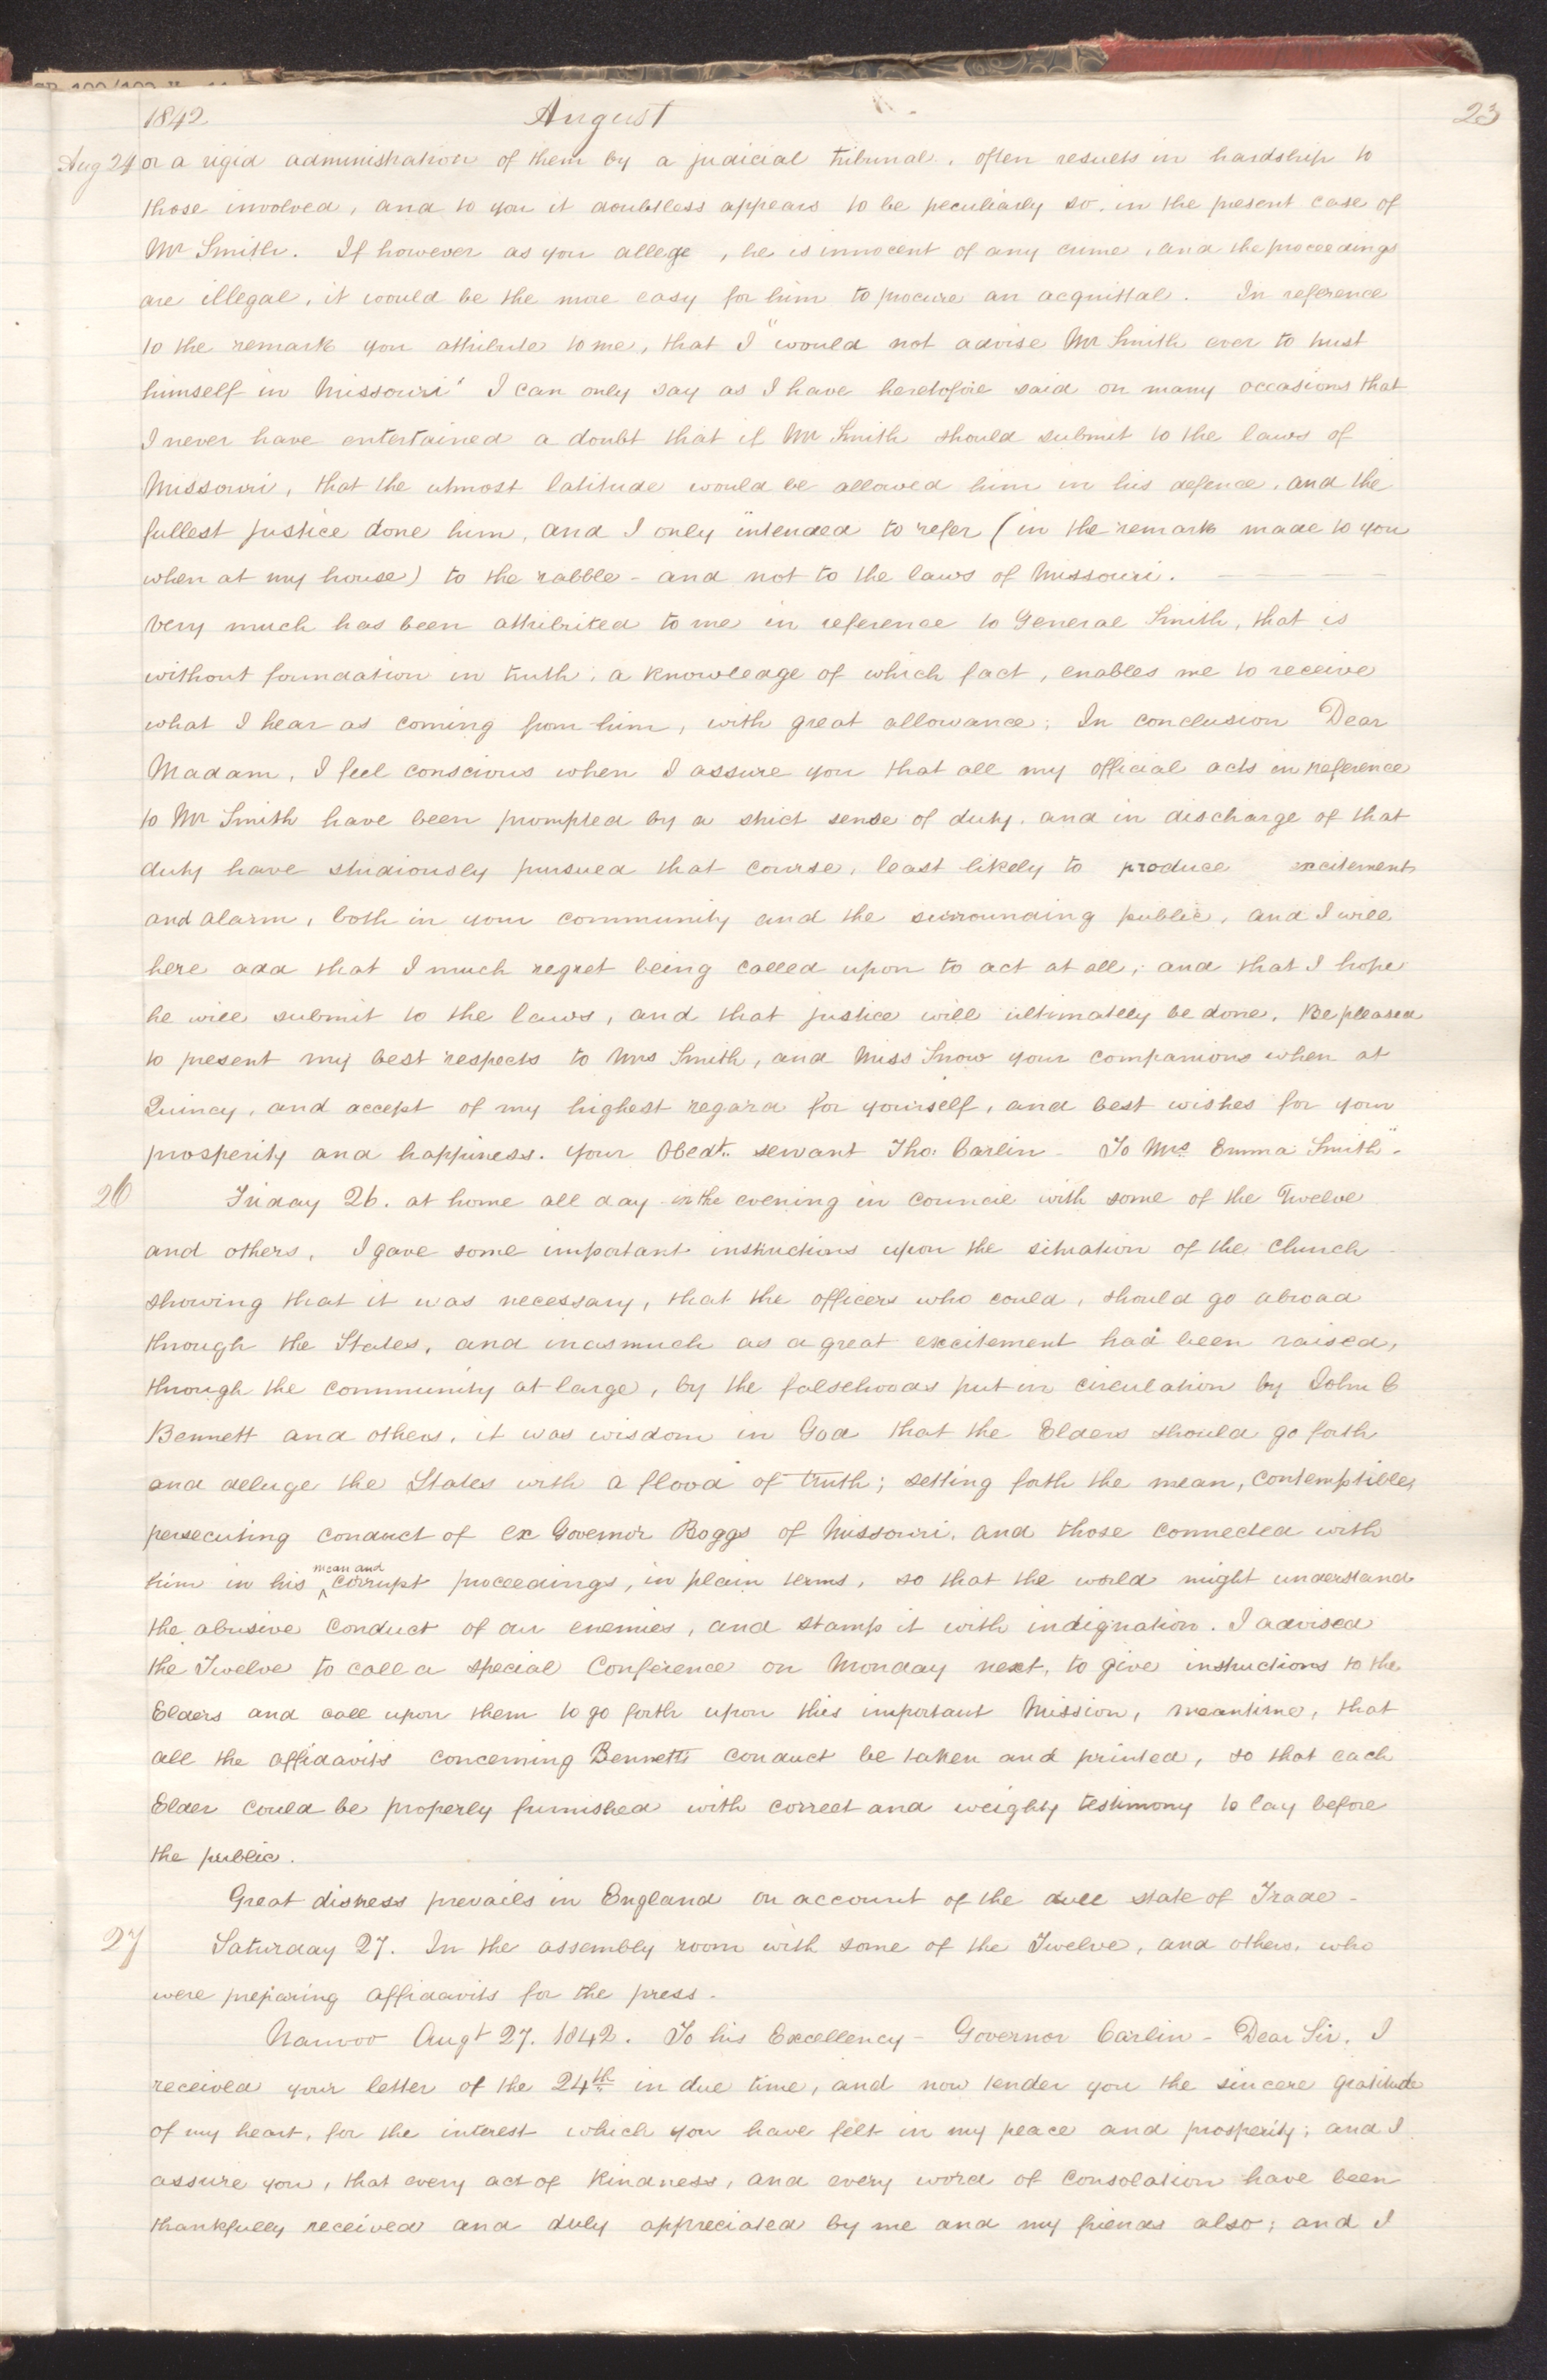 1842 August 23
Aug 24 or a rigid administration of them by a judicial tribunal, often results in hardship to
those involved, and to you it doubtless appears to be peculiarly so. in the present case of
Mr Smith. If however as you allege, he is innocent of any crime, and the proceedings
are illegal, it would be the more easy for him to procure an acquittal. In reference
to the remark you attribute to me, that I "would not advise Mr Smith ever to trust
himself in Missouri" I can only say as I have heretofore said on many occasions that
I never have entertained a doubt that if Mr Smith should submit to the laws of
Missouri, that the utmost latitude would be allowed him in his defence, and the
fullest justice done him, and I only intended to refer (in the remark made to you
when at my house) to the rabble - and not to the laws of Missouri.
Very much has been attributed to me in reference to General Smith, that is
without foundation in truth, a knowledge of which fact, enables me to receive
what I hear as coming from him, with great allowance; In conclusion Dear
Madam, I feel conscious when I assure you that all my official acts in reference
to Mr Smith have been prompted by a strict sense of duty. and in discharge of that
duty have studiously pursued that course, least likely to produce excitement
and alarm, both in your community and the surrounding public, and I will
here add that I much regret being called upon to act at all, and that I hope
he will submit to the laws, and that justice will ultimately be done. Be pleased
to present my best respects to Mrs Smith, and Miss Snow your companions when at
Quincy, and accept of my highest regard for yourself, and best wishes for your
prosperity and happiness. your Obedt. servant Tho. Carlin - To Mrs Emma Smith".
26 Friday 26. at home all day in the evening in council with some of the Twelve
and others, I gave some important instructions upon the situation of the church
showing that it was necessary, that the officers who could, should go abroad
through the States, and inasmuch as a great excitement had been raised,
through the community at large, by the falsehoods put in circulation by John C
Bennett and others, it was wisdom in God that the Elders should go forth
and deluge the States with a flood of truth; setting forth the mean, contemptible,
persecuting conduct of ex Governor Boggs of Missouri, and those connected with
him in his ^mean and corrupt proceedings, in plain terms, so that the world might understand
the abusive conduct of our enemies, and stamp it with indignation. I advised
the Twelve to call a special Conference on Monday next, to give instructions to the
Elders and call upon them to go forth upon this important Mission, meantime, that
all the affidavits concerning Bennetts conduct be taken and printed, so that each
Elder could be properly furnished with correct and weighty testimony to lay before
the public.
Great distress prevails in England on account of the dull state of Trade -
27 Saturday 27. In the assembly room with some of the Twelve, and others, who
were preparing affidavits for the press.
Nauvoo Augt 27. 1842. To his Excellency - Governor Carlin - Dear Sir. I
received your letter of the 24th in due time, and now tender you the sincere gratitude
of my heart, for the interest which you have felt in my peace and prosperity; and I
assure you, that every act of kindness, and every word of consolation have been
thankfully received and duly appreciated by me and my friends also; and I